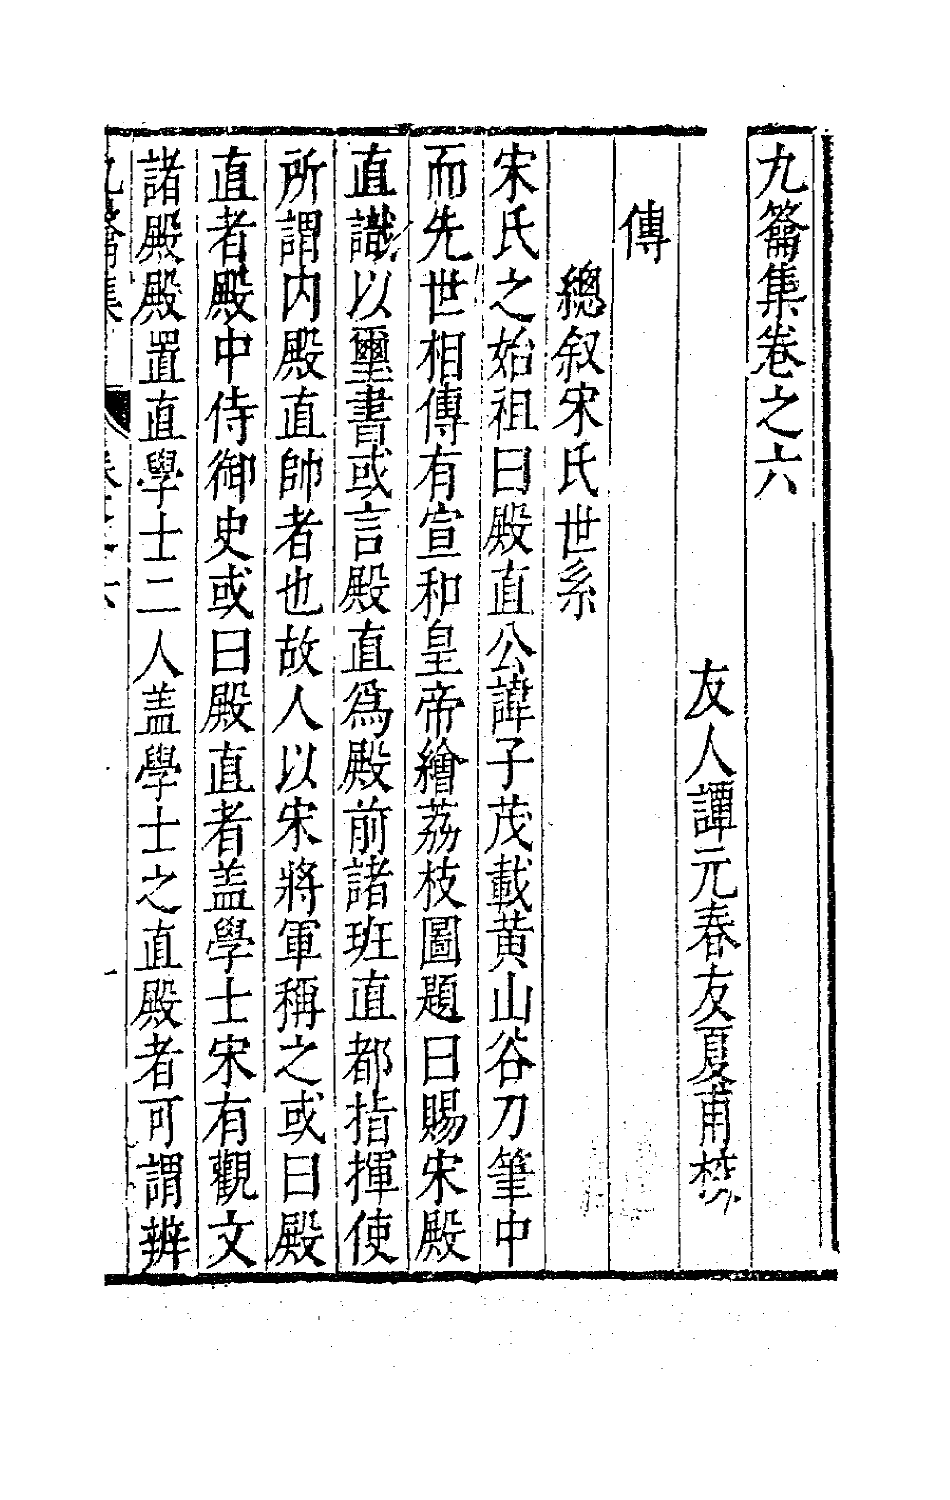 九籥集卷之六
友人譚元春友夏甫校
傳
總叙宋氏世系
宋氏之始祖曰殿直公諱子茂載黃山谷刀筆中
而先世相傳有宣和皇帝繪荔枝圖題曰賜宋殿
直識以璽書或言殿直爲殿前諸班直都指揮使
所謂内殿直帥者也故人以宋將軍稱之或曰殿
直者殿中侍御史或曰殿直者盖學士宋有觀文
諸殿殿置直學士二人盖學士之直殿者可謂辨
九籥集
卷之六
一